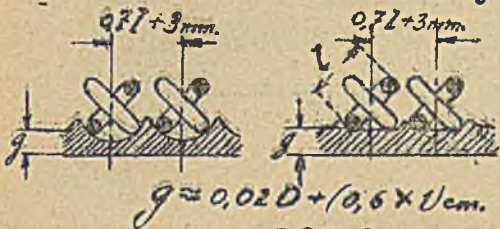 0,7l+3mm. 0,7l+3mm.
l
g g
g ≈ 0,02D+(0,6×1)cm.